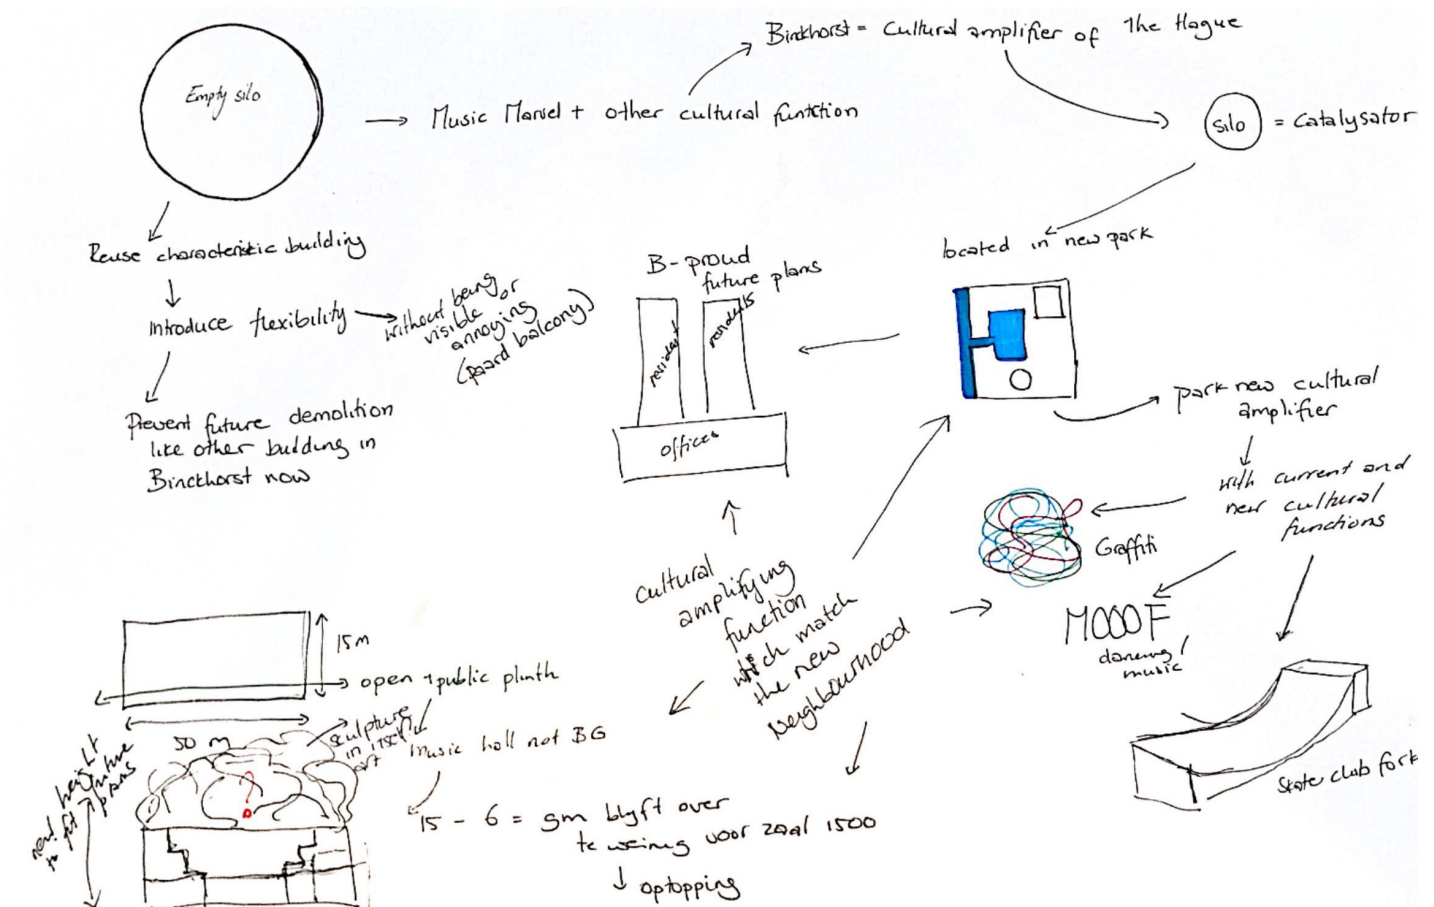 Empty silo
Music Marvel + other cultural function
Binckhorst = Cultural amplifier of The Hague
silo = Catalysator
Reuse characteristic building
Introduce flexibility
without being
visible or
annoying
(paard balcony)
Prevent future demolition
like other building in
Binckhorst now
B-proud
future plans
resident
residents
offices
located in new park
park new cultural
amplifier
with current and
new cultural
functions
Graffiti
MOOOF
dancing/
music
Skate club fork
cultural
amplifying
function
which match
the new
Neighbourhood
15m
open + public plinth
50 m
sculpture
in itself
art
music hall not BG
new height
to fit future
plans
?
15 - 6 = 9m blyft over
te weinig voor zaal 1500
optopping